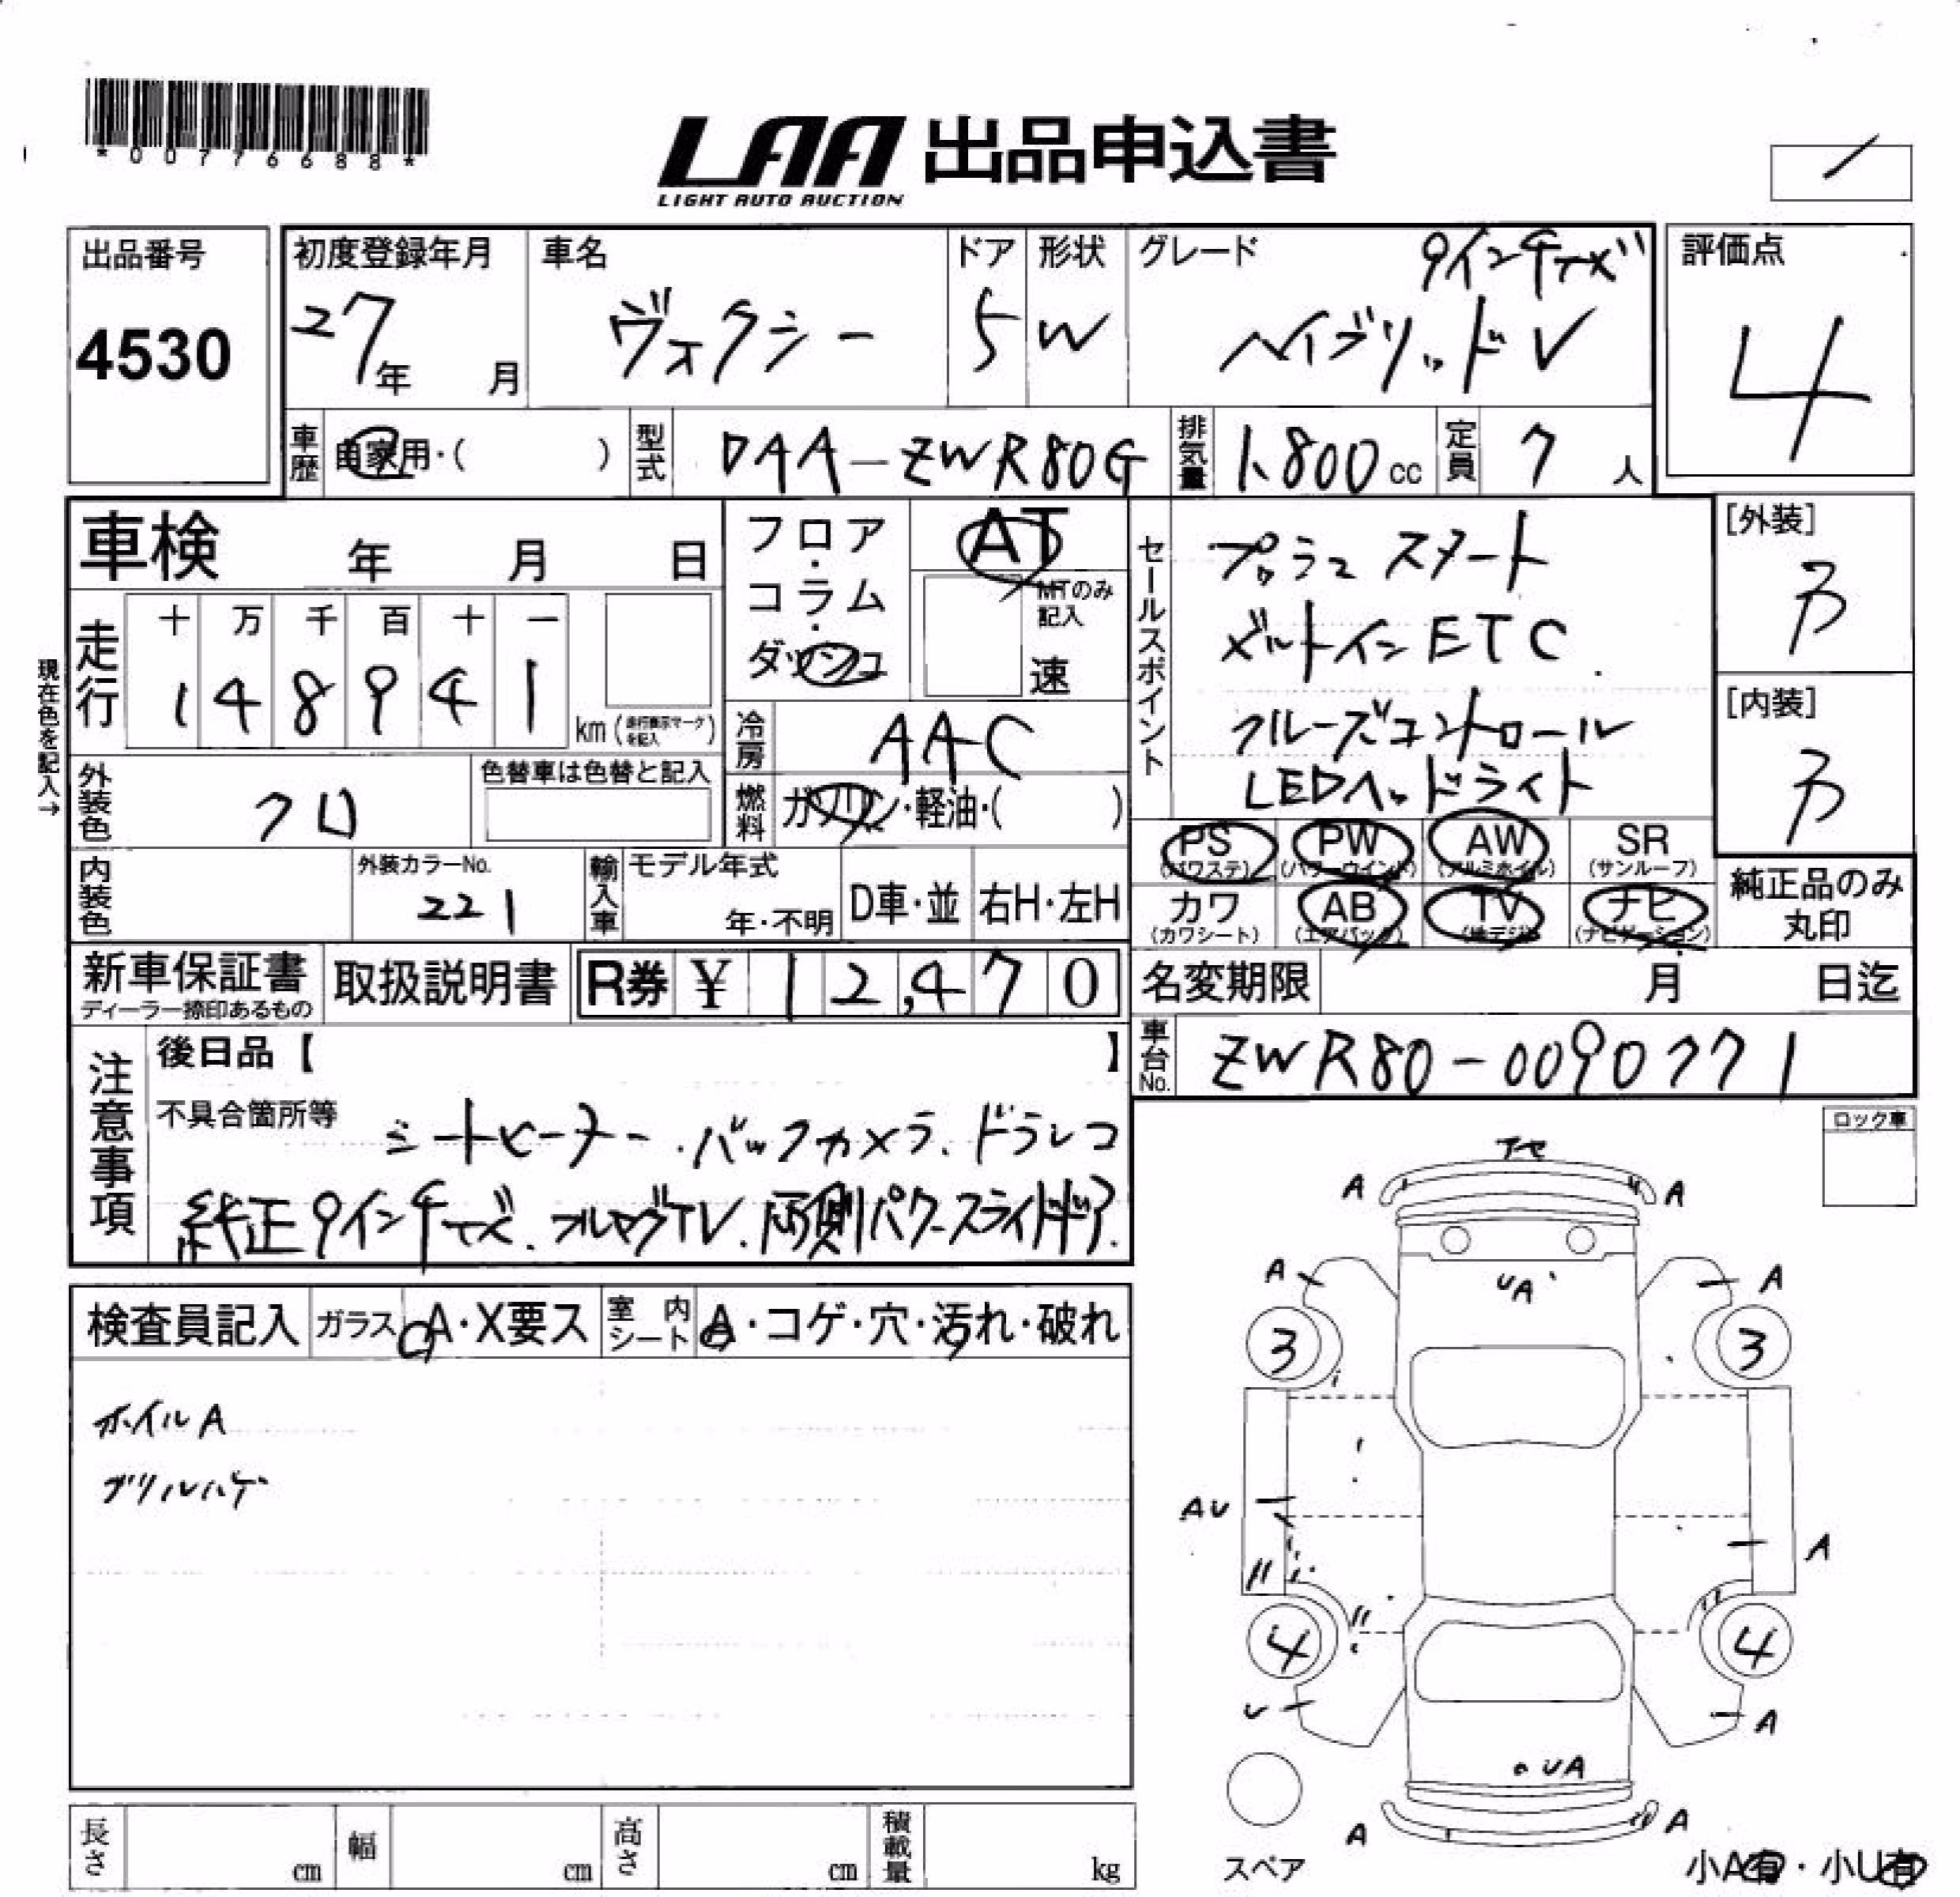 *00776688*
LAA 出品申込書
LIGHT AUTO AUCTION
出品番号
4530
初度登録年月
27年 月
車名
ヴォクシー
ドア
5
形状
W
グレード
9インチナビ
ハイブリッドV
評価点
4
車歴
自家用・( )
型式
DAA-ZWR80G
排気量
1.800cc
定員
7人
車検 年 月 日
現在色を記入→
走行
十 万 千 百 十 一
1 4 8 9 4 1
km (走行表示マークを記入)
フロア・コラム・ダッシュ
AT
MTのみ記入
速
冷房
AAC
燃料
ガソリン・軽油・( )
外装色
クロ
色替車は色替と記入
内装色
外装カラーNo.
221
輸入車
モデル年式
年・不明
D車・並
右H・左H
セールスポイント
プッシュスタート
ビルトインETC
クルーズコントロール
LEDヘッドライト
[外装]
[内装]
PS (パワステ)
PW (パワーウインド)
AW (アルミホイル)
SR (サンルーフ)
カワ (カワシート)
AB (エアバック)
TV (地デジ)
ナビ (ナビゲーション)
純正品のみ丸印
新車保証書
ディーラー捺印あるもの
取扱説明書
R券 ¥ 12,470
名変期限 月 日迄
車台No.
ZWR80-0090771
注意事項
後日品【 】
不具合箇所等
シートヒーター.バックカメラ.ドラレコ
純正9インチナビ.フルセグTV.両側パワースライドドア.
ロック車
検査員記入
ガラス A・X要ス
室内シート A・コゲ・穴・汚れ・破れ
ホイルA
グリルハゲ
A
A
A
UA
A
3
3
AU
A
4
4
U
A
UA
A
A
スペア
小A有・小U有
長さ cm
幅 cm
高さ cm
積載量 kg